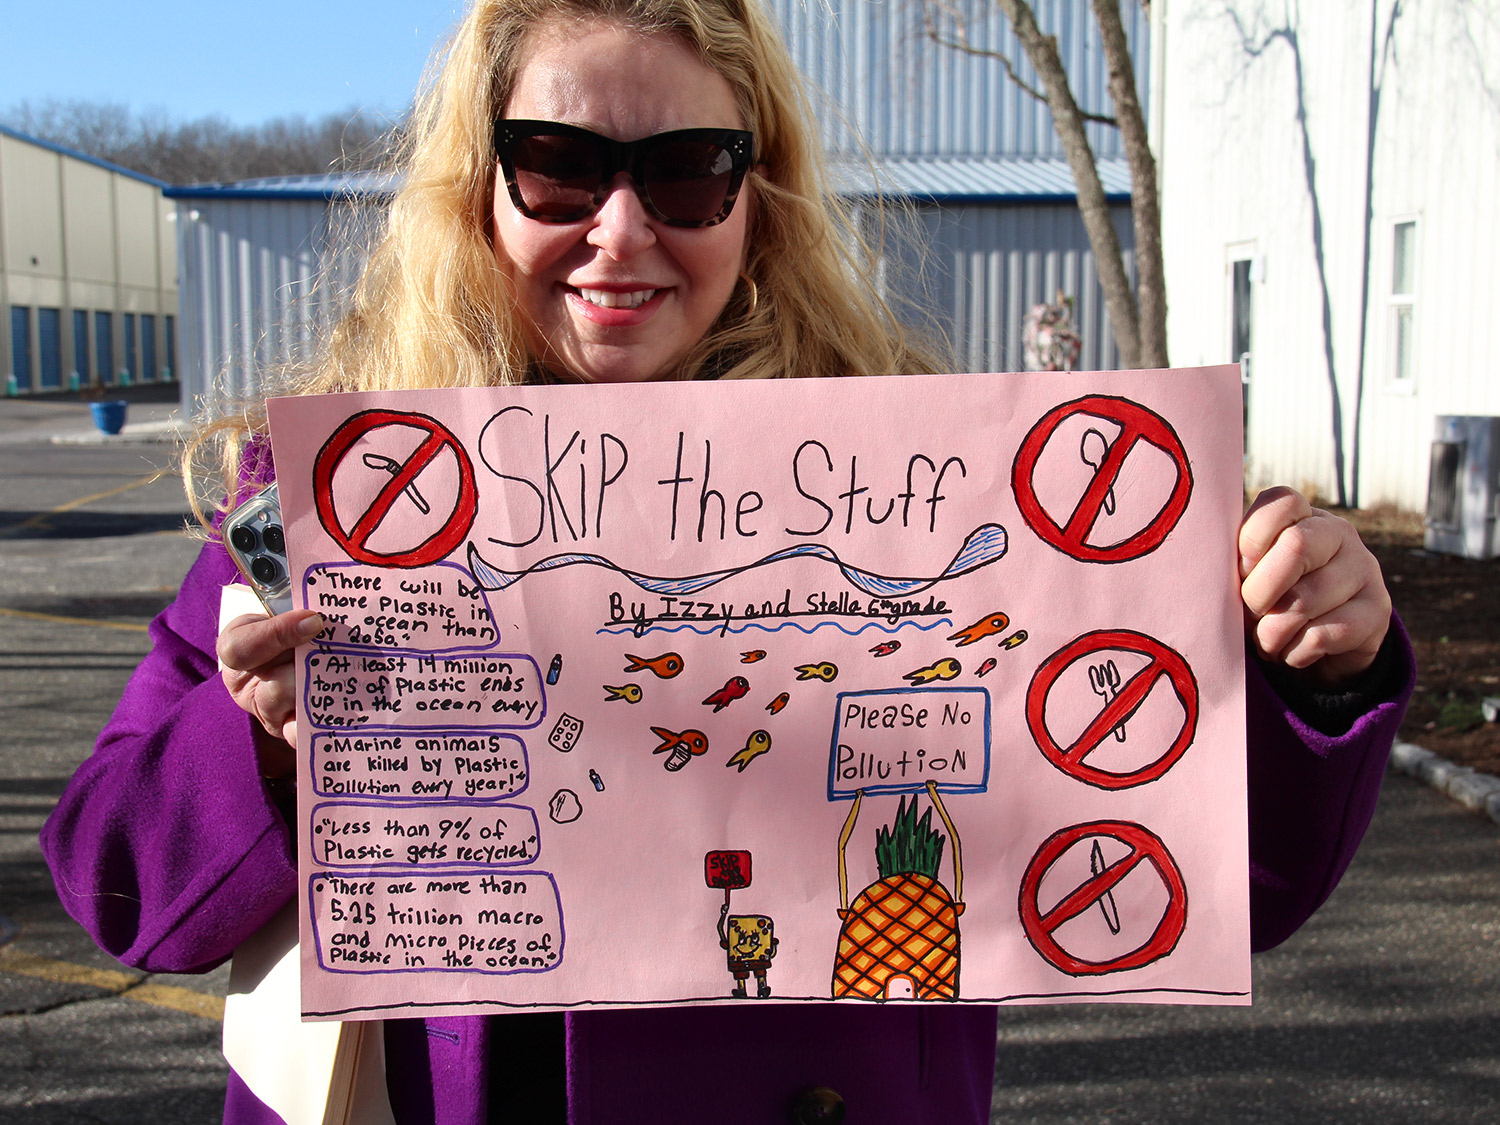 SKiP the Stuff
By Izzy and Stella 6th grade
• "There will be
more Plastic in
our ocean than
by 2050."
• "At least 14 million
tons of Plastic ends
up in the ocean every
year."
• "Marine animals
are killed by Plastic
Pollution every year!"
• "Less than 9% of
Plastic gets recycled."
• "There are more than
5.25 trillion macro
and Micro Pieces of
Plastic in the ocean."
Please No
Pollution
SKIP